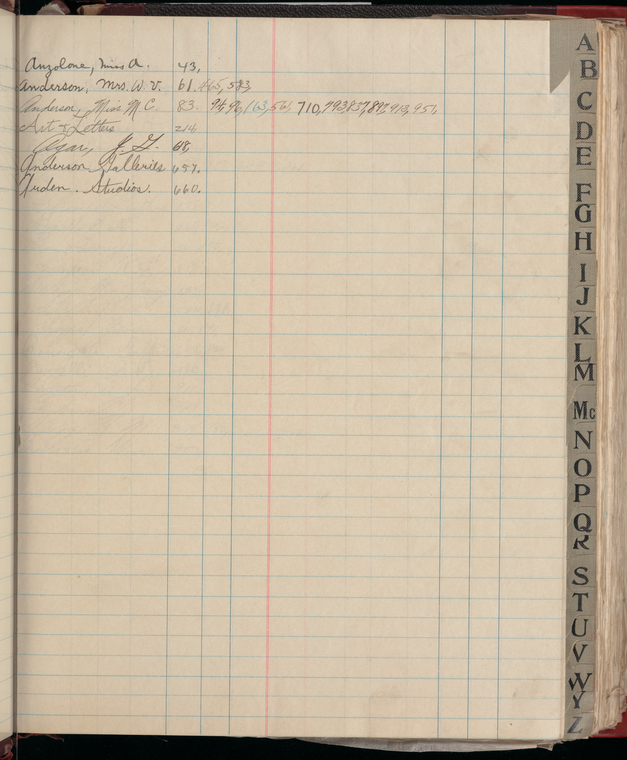 Anzolone, Miss A. 43,
Anderson, Mrs. W. V. 61. 465, 583,
Anderson, Miss M C. 83. 94, 96, 163, 561, 710, 793, 837, 897, 913, 951,
Art & Letters 214
Agar, J. G. 68,
Anderson Galleries 657.
Arden. Studios. 660.
A
B
C
D
E
F
G
H
I
J
K
L
M
Mc
N
O
P
Q
R
S
T
U
V
W
Y
Z